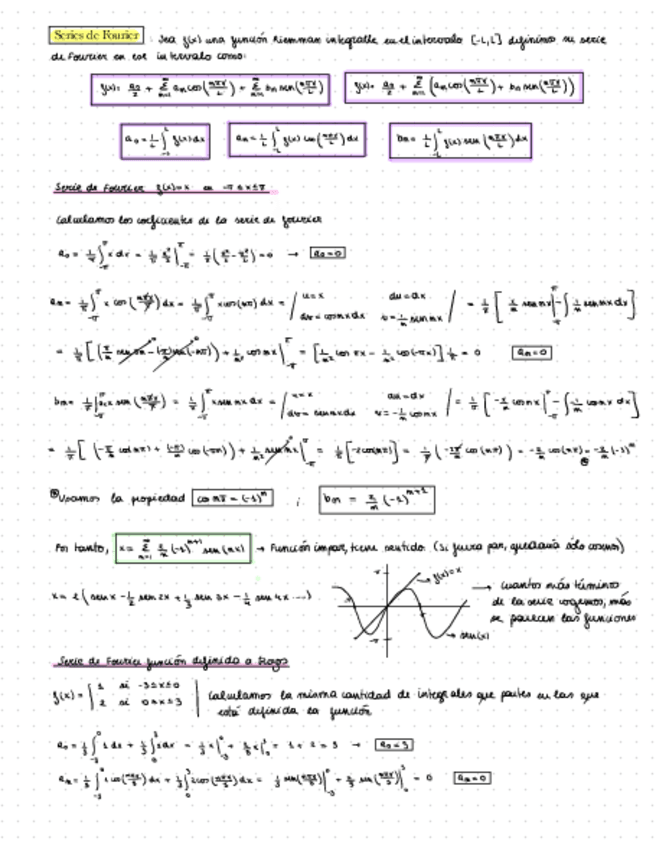 Series de Fourier : Sea f(x) una función Riemman integrable en el intervalo [-L,L] definimos su serie
de Fourier en ese intervalo como:
f(x) = a₀/2 + Σ_{n=1}^∞ aₙ cos(nπx/L) + Σ_{n=1}^∞ bₙ sen(nπx/L)    f(x) = a₀/2 + Σ_{n=1}^∞ (aₙ cos(nπx/L) + bₙ sen(nπx/L))
a₀ = 1/L ∫_{-L}^{L} f(x) dx    aₙ = 1/L ∫_{-L}^{L} f(x) cos(nπx/L) dx    bₙ = 1/L ∫_{-L}^{L} f(x) sen(nπx/L) dx
Serie de Fourier f(x)=x en -π≤x≤π
Calculamos los coeficientes de la serie de fourier
a₀ = 1/π ∫_{-π}^{π} x dx = 1/π x²/2 |_{-π}^{π} = 1/π (π²/2 - π²/2) = 0 → a₀=0
aₙ = 1/π ∫_{-π}^{π} x cos(nπx/π) dx = 1/π ∫_{-π}^{π} x cos(nx) dx = | u=x du=dx dv=cosnx dx v=1/n sennx | = 1/π [ x/n sennx |_{-π}^{π} - ∫ 1/n sennx dx ]
= 1/π [ (π/n sen nπ - (-π)/n sen(-nπ)) + 1/n² cos nx ]_{-π}^{π} = [ 1/n² cos πn - 1/n² cos(-πn) ] 1/π = 0    aₙ=0
bₙ = 1/π ∫_{-π}^{π} x sen(nπx/π) = 1/π ∫_{-π}^{π} x sennx dx = | u=x du=dx dv=sennx dx v=-1/n cosnx | = 1/π [ -x/n cosnx |_{-π}^{π} - ∫ -1/n cosnx dx ]
= 1/π [ (-π/n cos(nπ) + (-π)/n cos(-πn)) + 1/n² sennx ]_{-π}^{π} = 1/π [-2cos(nπ)] = 1/π (-2π/n cos(nπ)) = -2/n cos(nπ) = -2/n (-1)ⁿ
Usamos la propiedad cos nπ = (-1)ⁿ ; bₙ = 2/n (-1)ⁿ⁺¹
Por tanto, x = Σ_{n=1}^∞ 2/n (-1)ⁿ⁺¹ sen(nx) → Función impar, tiene sentido. (Si fuera par, quedaría sólo cosenos)
x = 2 ( sen x - 1/2 sen 2x + 1/3 sen 3x - 1/4 sen 4x ...)
π
f(x)=x
-π
sen(x)
→ cuantos más términos
de la serie cogemos, más
se parecen las funciones
Serie de Fourier función definida a trozos
f(x) = { 1 si -3≤x≤0
2 si 0≤x≤3
Calculamos la misma cantidad de integrales que partes en las que
está definida la función
a₀ = 1/3 ∫_{-3}^{0} 1 dx + 1/3 ∫_{0}^{3} 2 dx = 1/3 x |_{-3}^{0} + 2/3 x |_{0}^{3} = 1 + 2 = 3 → a₀=3
aₙ = 1/3 ∫_{-3}^{0} 1 cos(nπx/3) dx + 1/3 ∫_{0}^{3} 2cos(nπx/3) dx = 1/3 sen(nπx/3) |_{-3}^{0} + 2/3 sen(nπx/3) |_{0}^{3} = 0    aₙ=0